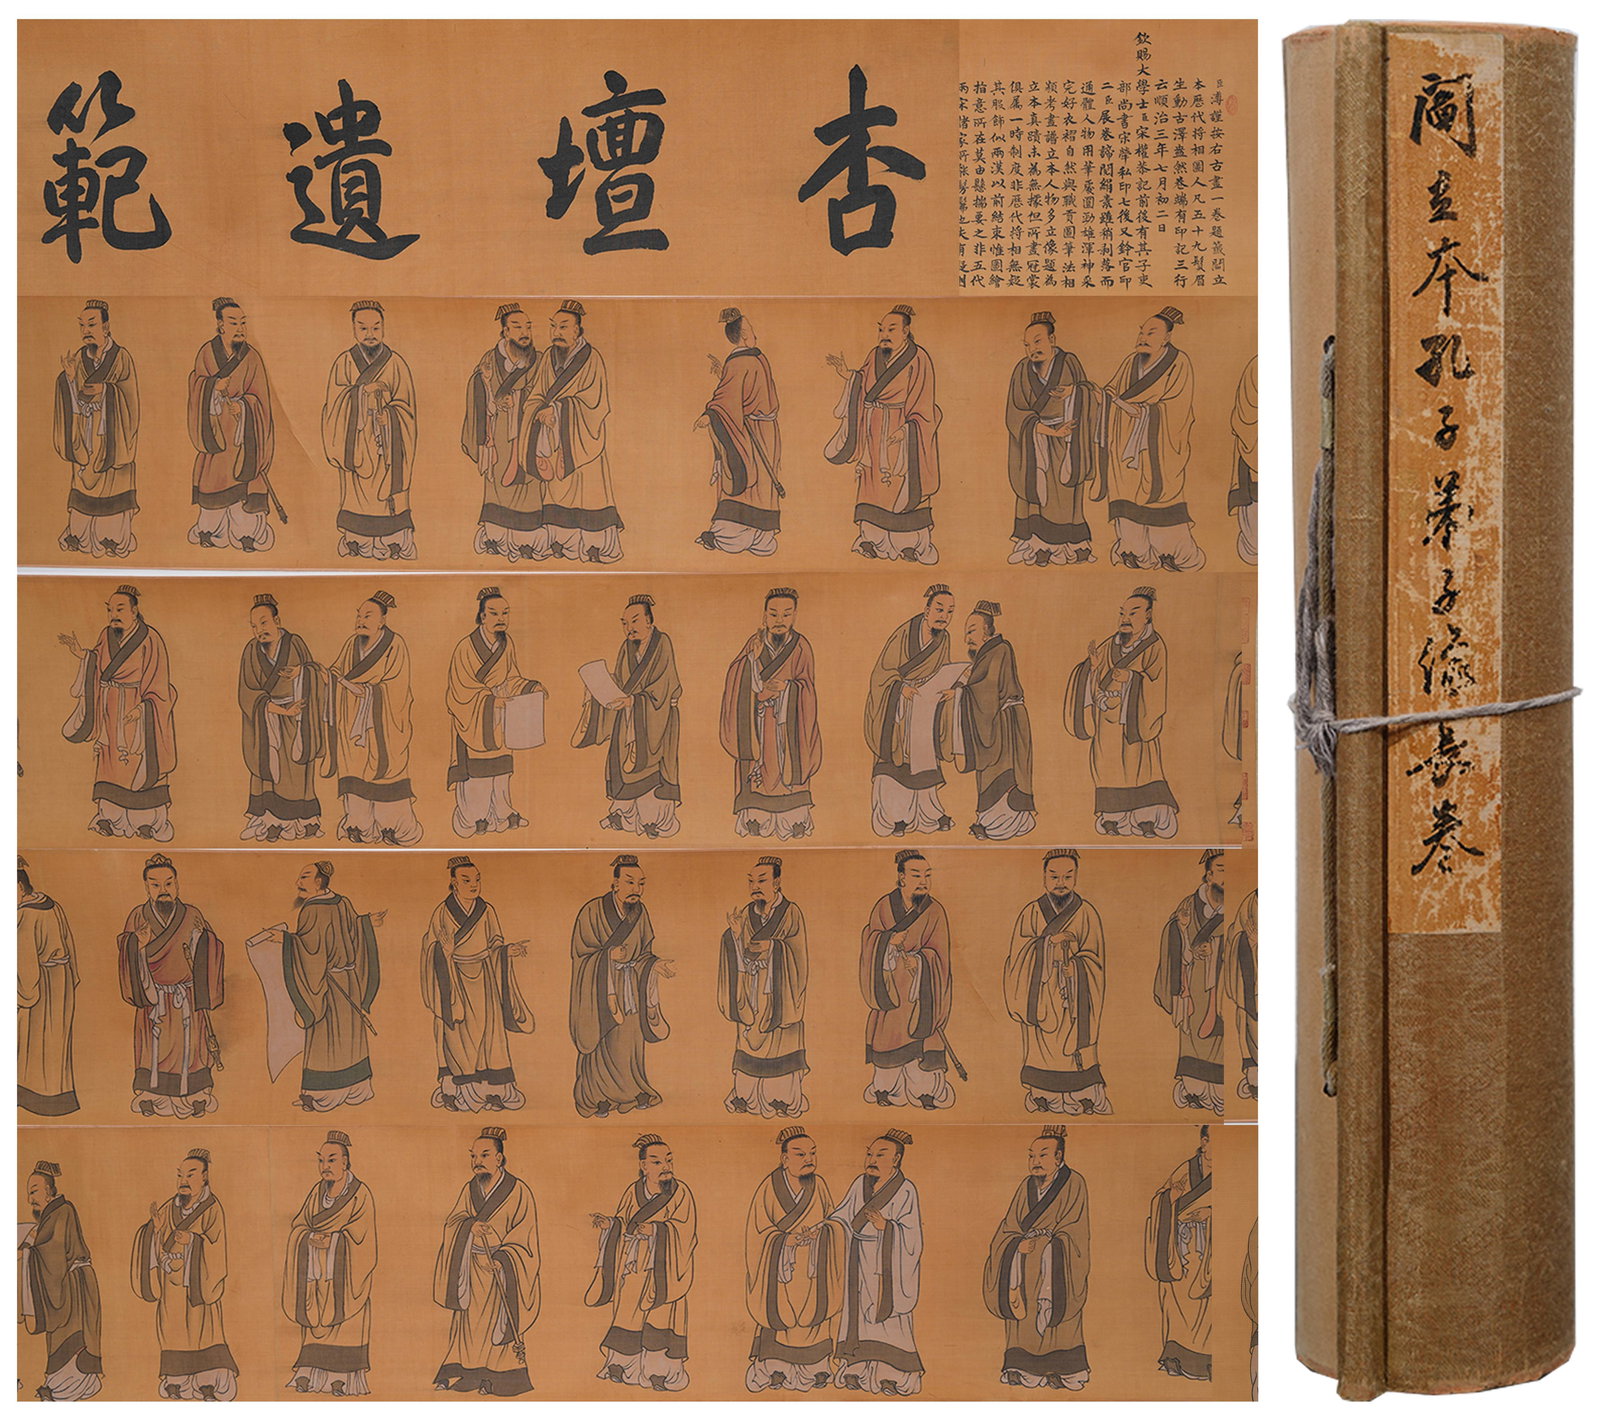 杏壇遺範
欽賜大
臣溥謹按右古畫一卷題簽閻立
本歷代將相圖人凡五十九鬚眉
生動古澤盎然卷端有印記三行
云順治三年七月初二日
學士臣宋權恭記前後有其子吏
部尚書宋犖私印七後又鈐官印
二臣展卷諦閱絹素雖稍剥落而
通體人物用筆慶圓勁雄渾神采
完好衣褶自然與職貢圖筆法相
類考畫譜立本人物多立像題為
立本真蹟未為無據但所畫冠裳
俱屬一時制度非歷代將相無疑
其服飾似兩漢以前結束惟圖繪
指意所在莫由懸揣要之非五代
兩宋諸家所能髣髴也
閻立本孔子弟子像長卷